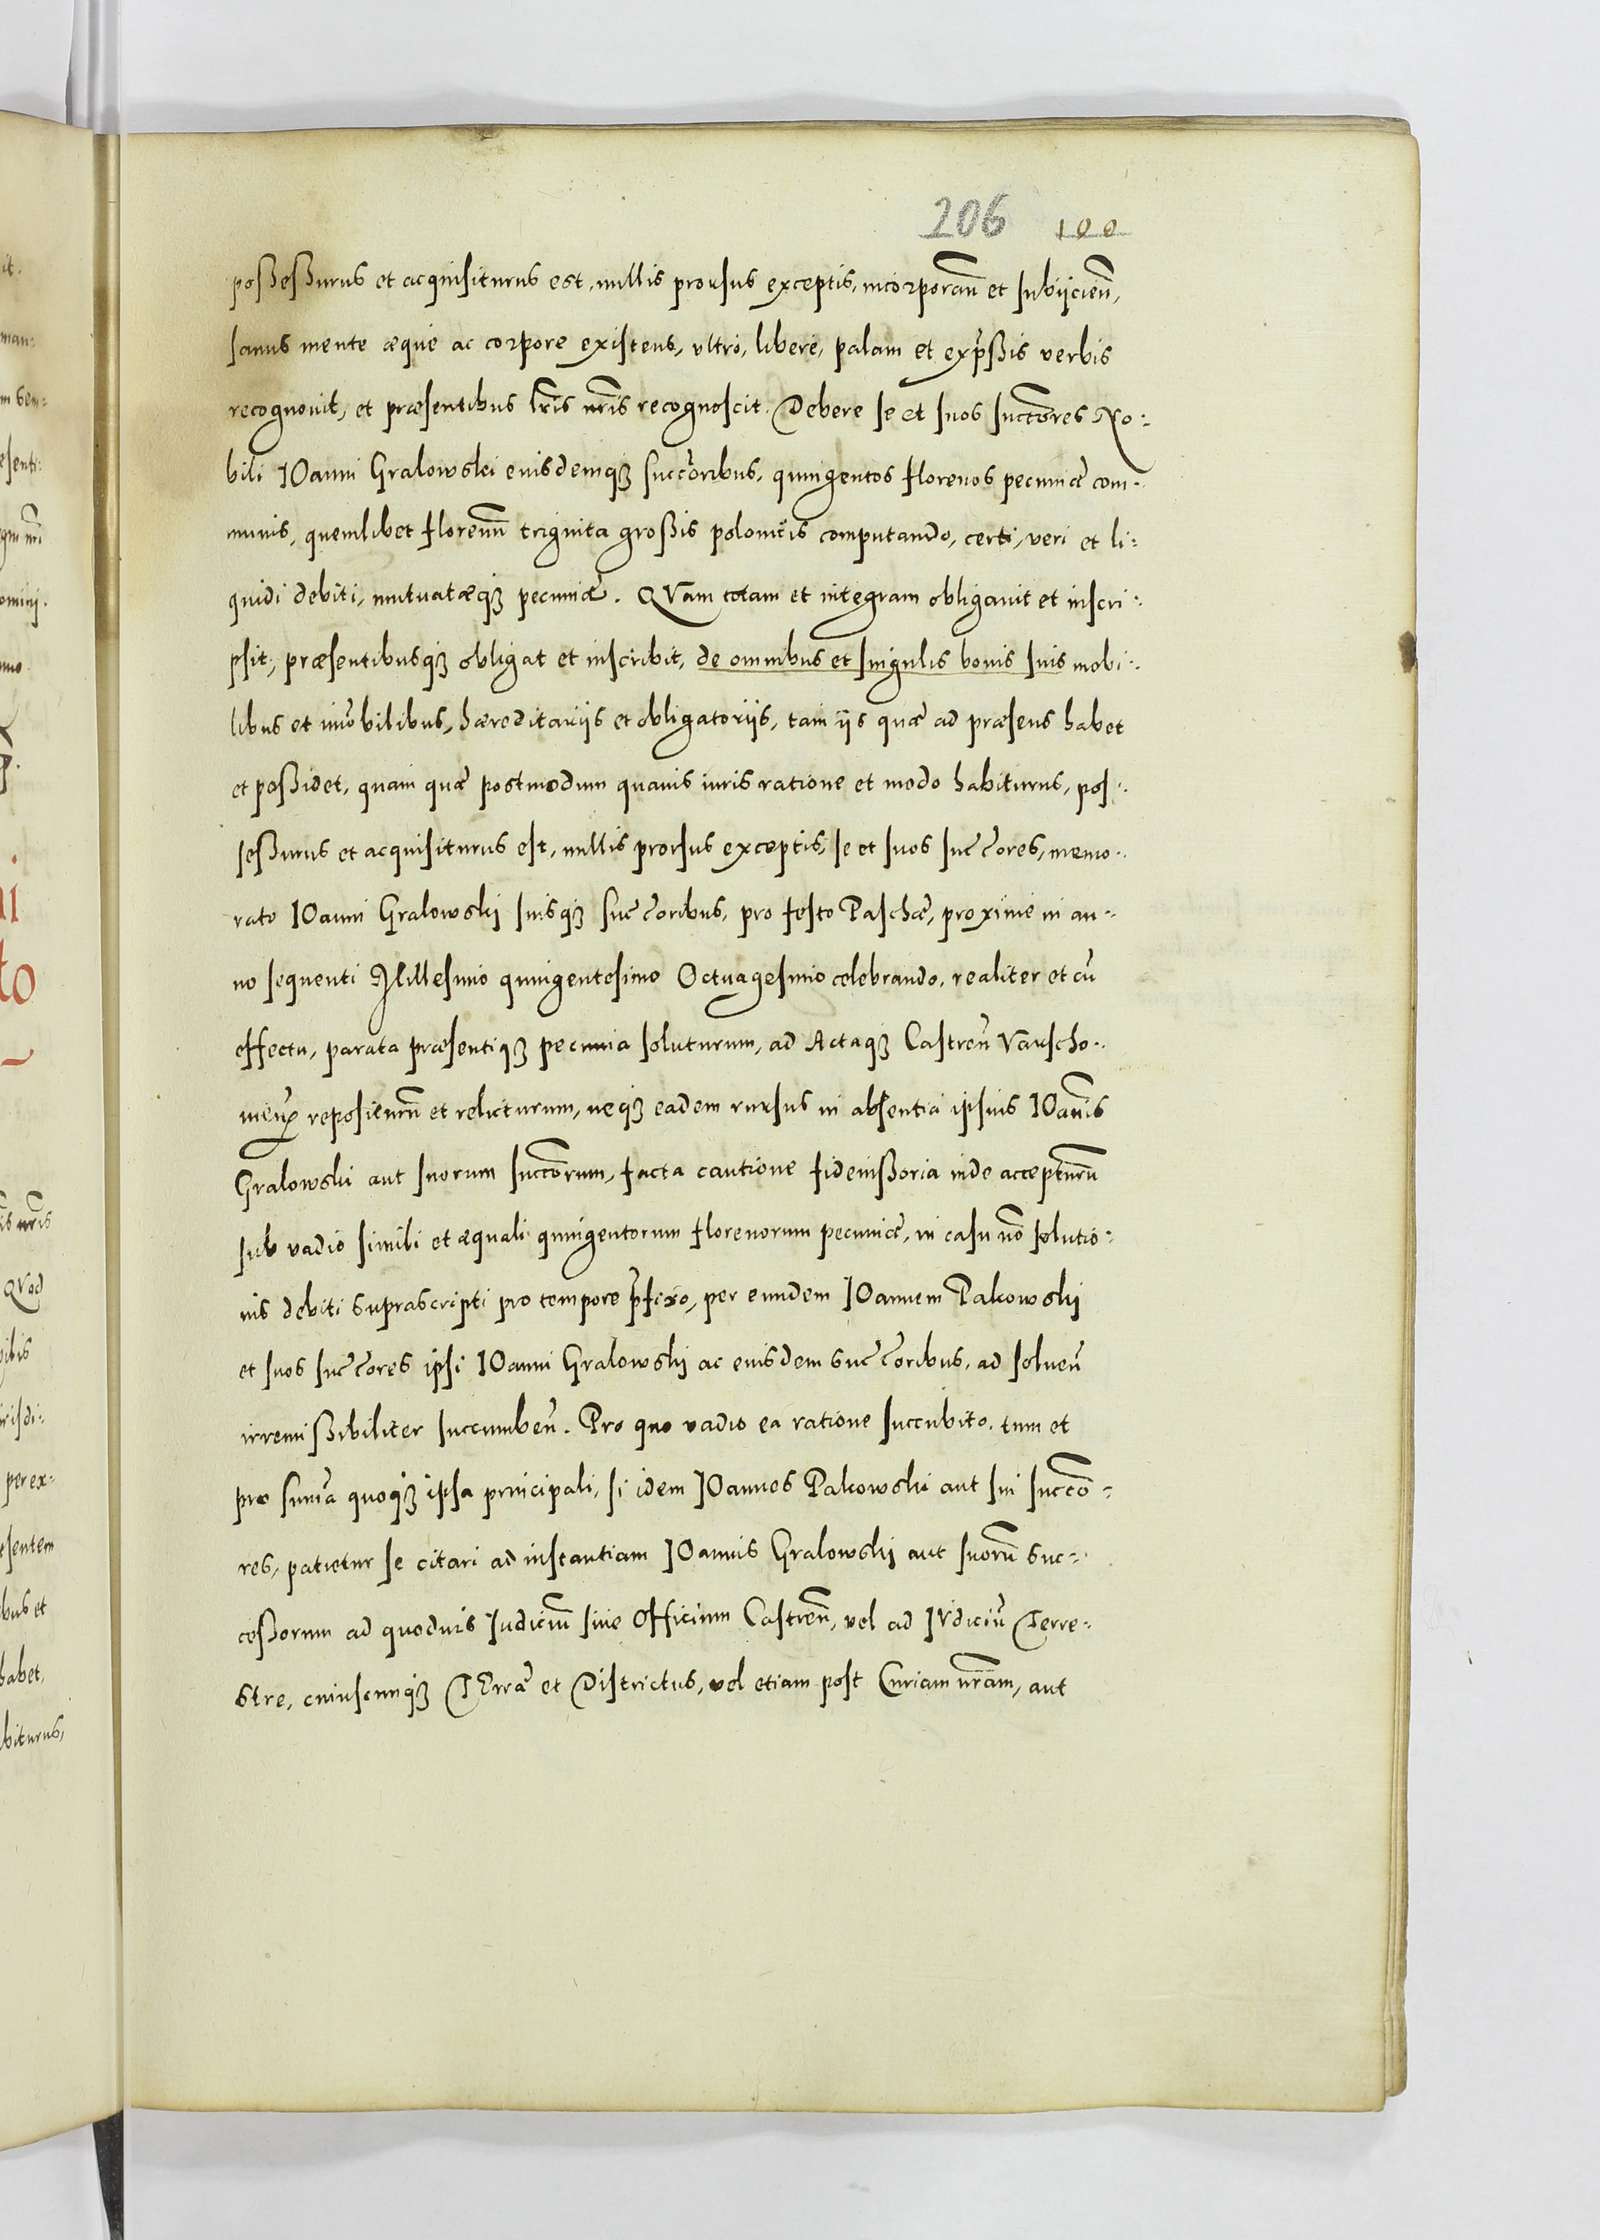 206 100
poßeßurus et acquisiturus est, nullis prorsus exceptis, incorporan̄ et subijcien̄,
sanus mente æque ac corpore existens, vltro, libere, palam et expr̄ßis verbis
recognouit, et præsentibus lr̄is nr̄is recognoscit. Debere se et suos succōres No:
bili IOanni Gralowski eiusdemqꝫ succōribus, quingentos florenos pecuniæ com:
munis, quemlibet florenū triginta großis polonic̄is computando, certi, veri et li:
quidi debiti, mutuatæqꝫ pecuniæ. QVam totam et integram obligauit et inscri:
psit, præsentibusqꝫ obligat et inscribit, de omnibus et singulis bonis suis mobi:
libus et im̄obilibus, hæreditarijs et obligatorijs, tam ijs quæ ad præsens habet
et poßidet, quam quæ postmodum quauis iuris ratione et modo habiturus, pos:
seßurus et acquisiturus est, nullis prorsus exceptis, se et suos suc̄c̄ores, memo:
rato IOanni Gralowski suisqꝫ suc̄c̄oribus, pro festo Paschæ, proxime in an:
no sequenti Millesimo quingentesimo Octuagesimo celebrando, realiter et cū
effectu, parata præsentiqꝫ pecunia soluturum, ad Actaqꝫ Castren̄ Varscho:
uien̄ repositurū et relicturum, neqꝫ eadem rursus in absentia ipsius IOan̄is
Gralowski aut suorum succōrum, facta cautione fideiußoria inde accepturū
sub vadio simili et æquali quingentorum florenorum pecuniæ, in casu nō solutio:
nis debiti suprascripti pro tempore p̄fixo, per eundem IOannem Pakowski
et suos suc̄c̄ores ipsi IOanni Gralowski ac eiusdem suc̄c̄oribus, ad soluen̄
irremißibiliter succumben̄. Pro quo vadio ea ratione succubito, tum et
pro sum̄a quoqꝫ ipsa principali, si idem IOannes Pakowski aut sui succō:
res, patietur se citari ad instantiam IOannis Gralowski aut suorū suc:
ceßorum ad quoduis Iudiciū siue Officium Castren̄, vel ad IVdiciū Terre:
stre, cuiuscunqꝫ TErræ et Districtus, vel etiam post Curiam nr̄am, aut